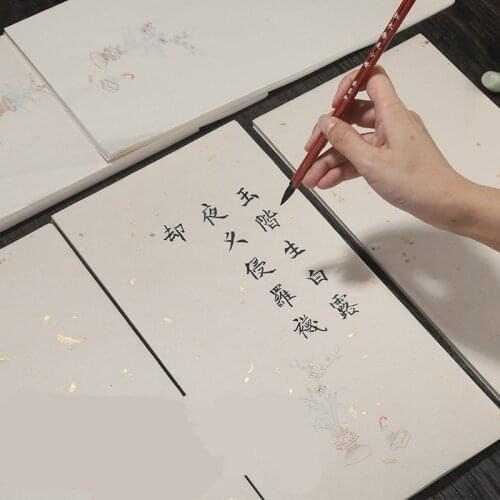 玉階生白露
夜久侵羅襪
却